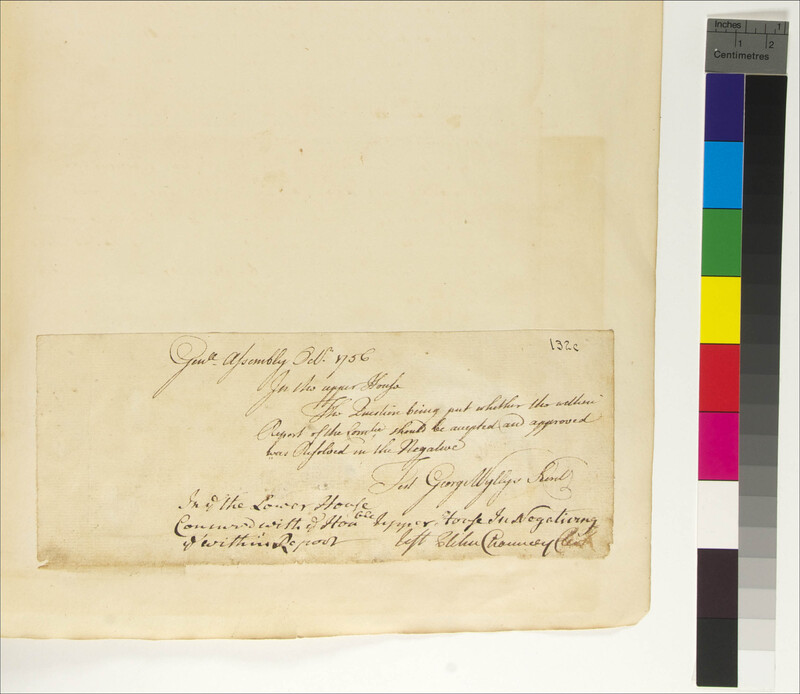 Inches 1
1 2
Centimetres
132c
Genll. Assembly Octr. 1756
In the upper House
The Question being put whether the within
Report of the Comtee. should be accepted and approved
was Resolved in the Negative
Test George Wyllys Secret
In ye the Lower House
Concurd with ye Honble upper House In Negativing
ye within Report test Elihu Chauncey Clerk